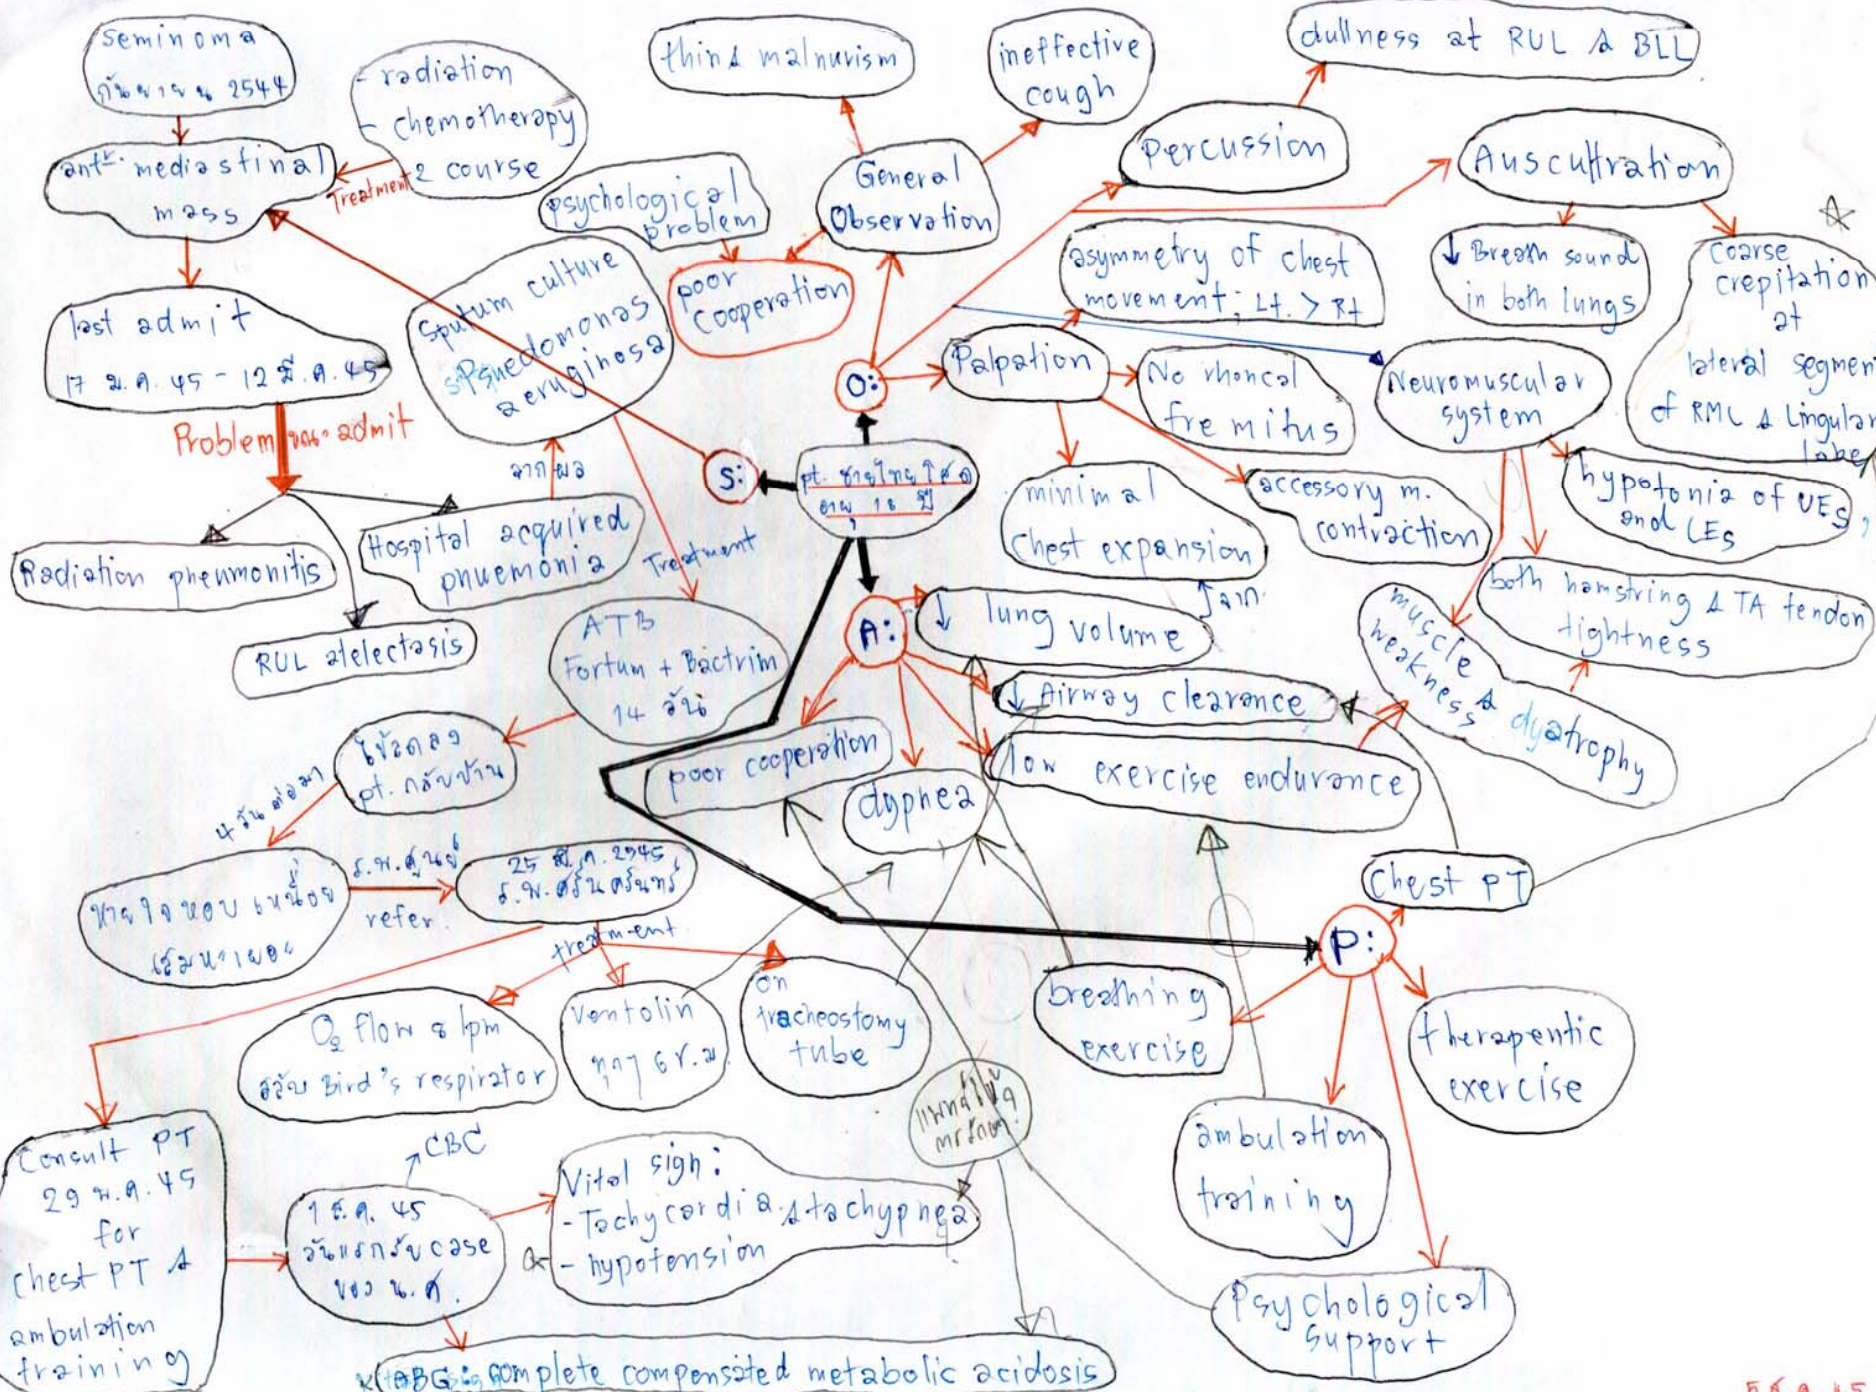 seminoma
กันยายน 2544
- radiation
- chemotherapy
2 course
Treatment
antr. mediastinal
mass
last admit
17 ม.ค. 45 - 12 มี.ค. 45
Problem ขณะ admit
Radiation pneumonitis
RUL atelectasis
Hospital acquired
pnuemonia
จากผล
sputum culture
Psuedomonas
aeruginosa
Treatment
ATB
Fortum + Bactrim
14 วัน
ไข้ลดลง
pt. กลับบ้าน
4 วันต่อมา
หายใจหอบเหนื่อย
เสมหะเยอะ
ร.พ.ศูนย์
refer
25 มี.ค. 2545
ร.พ.ศรีนครินทร์
treatment
O2 flow 8 lpm
สลับ Bird's respirator
Ventolin
ทุกๆ 6 ช.ม.
on
tracheostomy
tube
Consult PT
29 พ.ค. 45
for
chest PT &
ambulation
training
1 ธ.ค. 45
วันแรกรับ case
ของ น.ศ.
CBC
Vital sign:
- Tachycardia & tachypnea
- hypotension
ABG: complete compensated metabolic acidosis
S:
pt. ชายไทยโสด
อายุ 18 ปี
O:
General
Observation
thin & malnurism
ineffective
cough
psychological
problem
poor
cooperation
Percussion
dullness at RUL & BLL
Auscultration
↓ Breath sound
in both lungs
coarse
crepitation
at
lateral segment
of RML & Lingular
lobe
Palpation
asymmetry of chest
movement; Lt. > Rt
No rhoncal
fremitus
minimal
chest expansion
accessory m.
contraction
Neuromuscular
system
hypotonia of UEs
and LEs
both hamstring & TA tendon
tightness
muscle
weakness &
dyatrophy
A:
↓ lung volume
จาก
↓ Airway clearance
low exercise endurance
dypnea
poor cooperation
P:
Chest PT
breathing
exercise
therapeutic
exercise
ambulation
training
Psychological
support